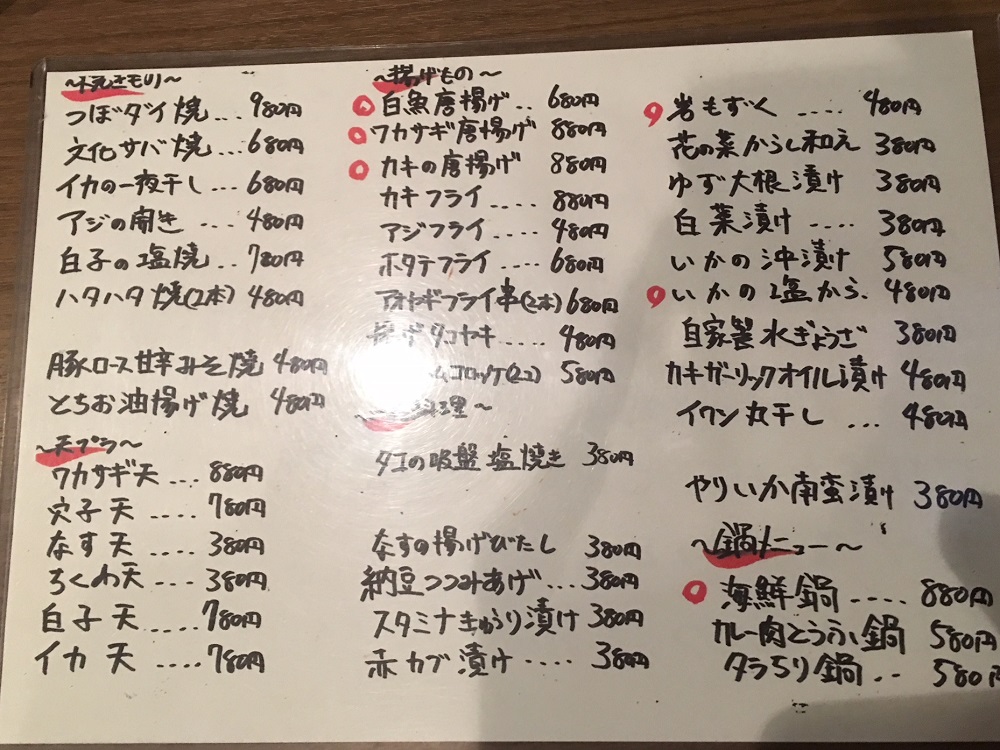 つぼダイ焼... 980円
文化サバ焼...680円
イカの一夜干し...680円
アジの開き....480円
白子の塩焼...780円
ハタハタ焼(2本) 480円
豚ロース甘辛みそ焼 480円
とちお油揚げ焼 480円
～天プラ～
ワカサギ天...880円
穴子天....780円
なす天....380円
ちくわ天....380円
白子天....780円
イカ天....780円
～揚げもの～
白魚唐揚げ..680円
ワカサギ唐揚げ 880円
カキの唐揚げ 880円
カキフライ....880円
アジフライ....480円
ホタテフライ...680円
アオヤギフライ串(2本)680円
タコヤキ....480円
コロッケ(2コ) 580円
料理～
タコの吸盤塩焼き 380円
なすの揚げびたし 380円
納豆つつみあげ...380円
スタミナきゅうり漬け380円
赤カブ漬け....380円
岩もずく....480円
花の菜からし和え 380円
ゆず大根漬け 380円
白菜漬け....380円
いかの沖漬け 580円
いかの塩から 480円
自家製水ぎょうざ 380円
カキガーリックオイル漬け 480円
イワシ丸干し...480円
やりいか南蛮漬け 380円
～鍋メニュー～
海鮮鍋....880円
カレー肉とうふ鍋 580円
タラちり鍋..580円